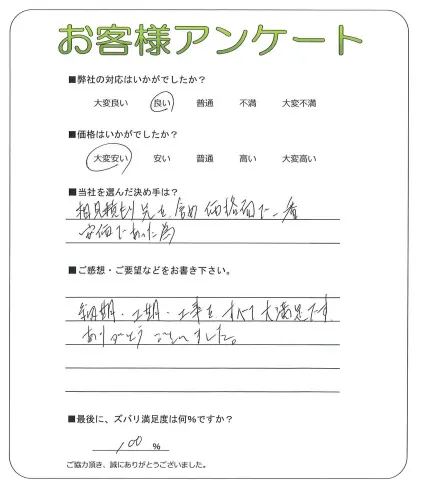 お客様アンケート
■弊社の対応はいかがでしたか？
大変良い 良い 普通 不満 大変不満
■価格はいかがでしたか？
大変安い 安い 普通 高い 大変高い
■当社を選んだ決め手は？
相見積もり 含め 価格面で一番
安価であった為
■ご感想・ご要望などをお書き下さい。
納期・工期・工事を すべて大満足です
ありがとうございました。
■最後に、ズバリ満足度は何％ですか？
100 ％
ご協力頂き、誠にありがとうございました。